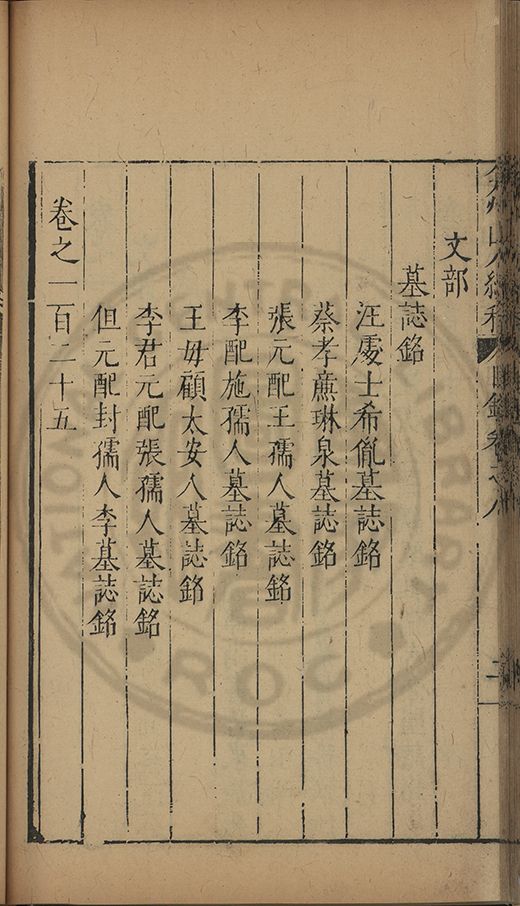 弇州山人續稿 目錄卷之八 二
文部
墓誌銘
汪處士希胤墓誌銘
蔡孝廉琳泉墓誌銘
張元配王孺人墓誌銘
李配施孺人墓誌銘
王毋顧太安人墓誌銘
李君元配張孺人墓誌銘
但元配封孺人李墓誌銘
卷之一百二十五